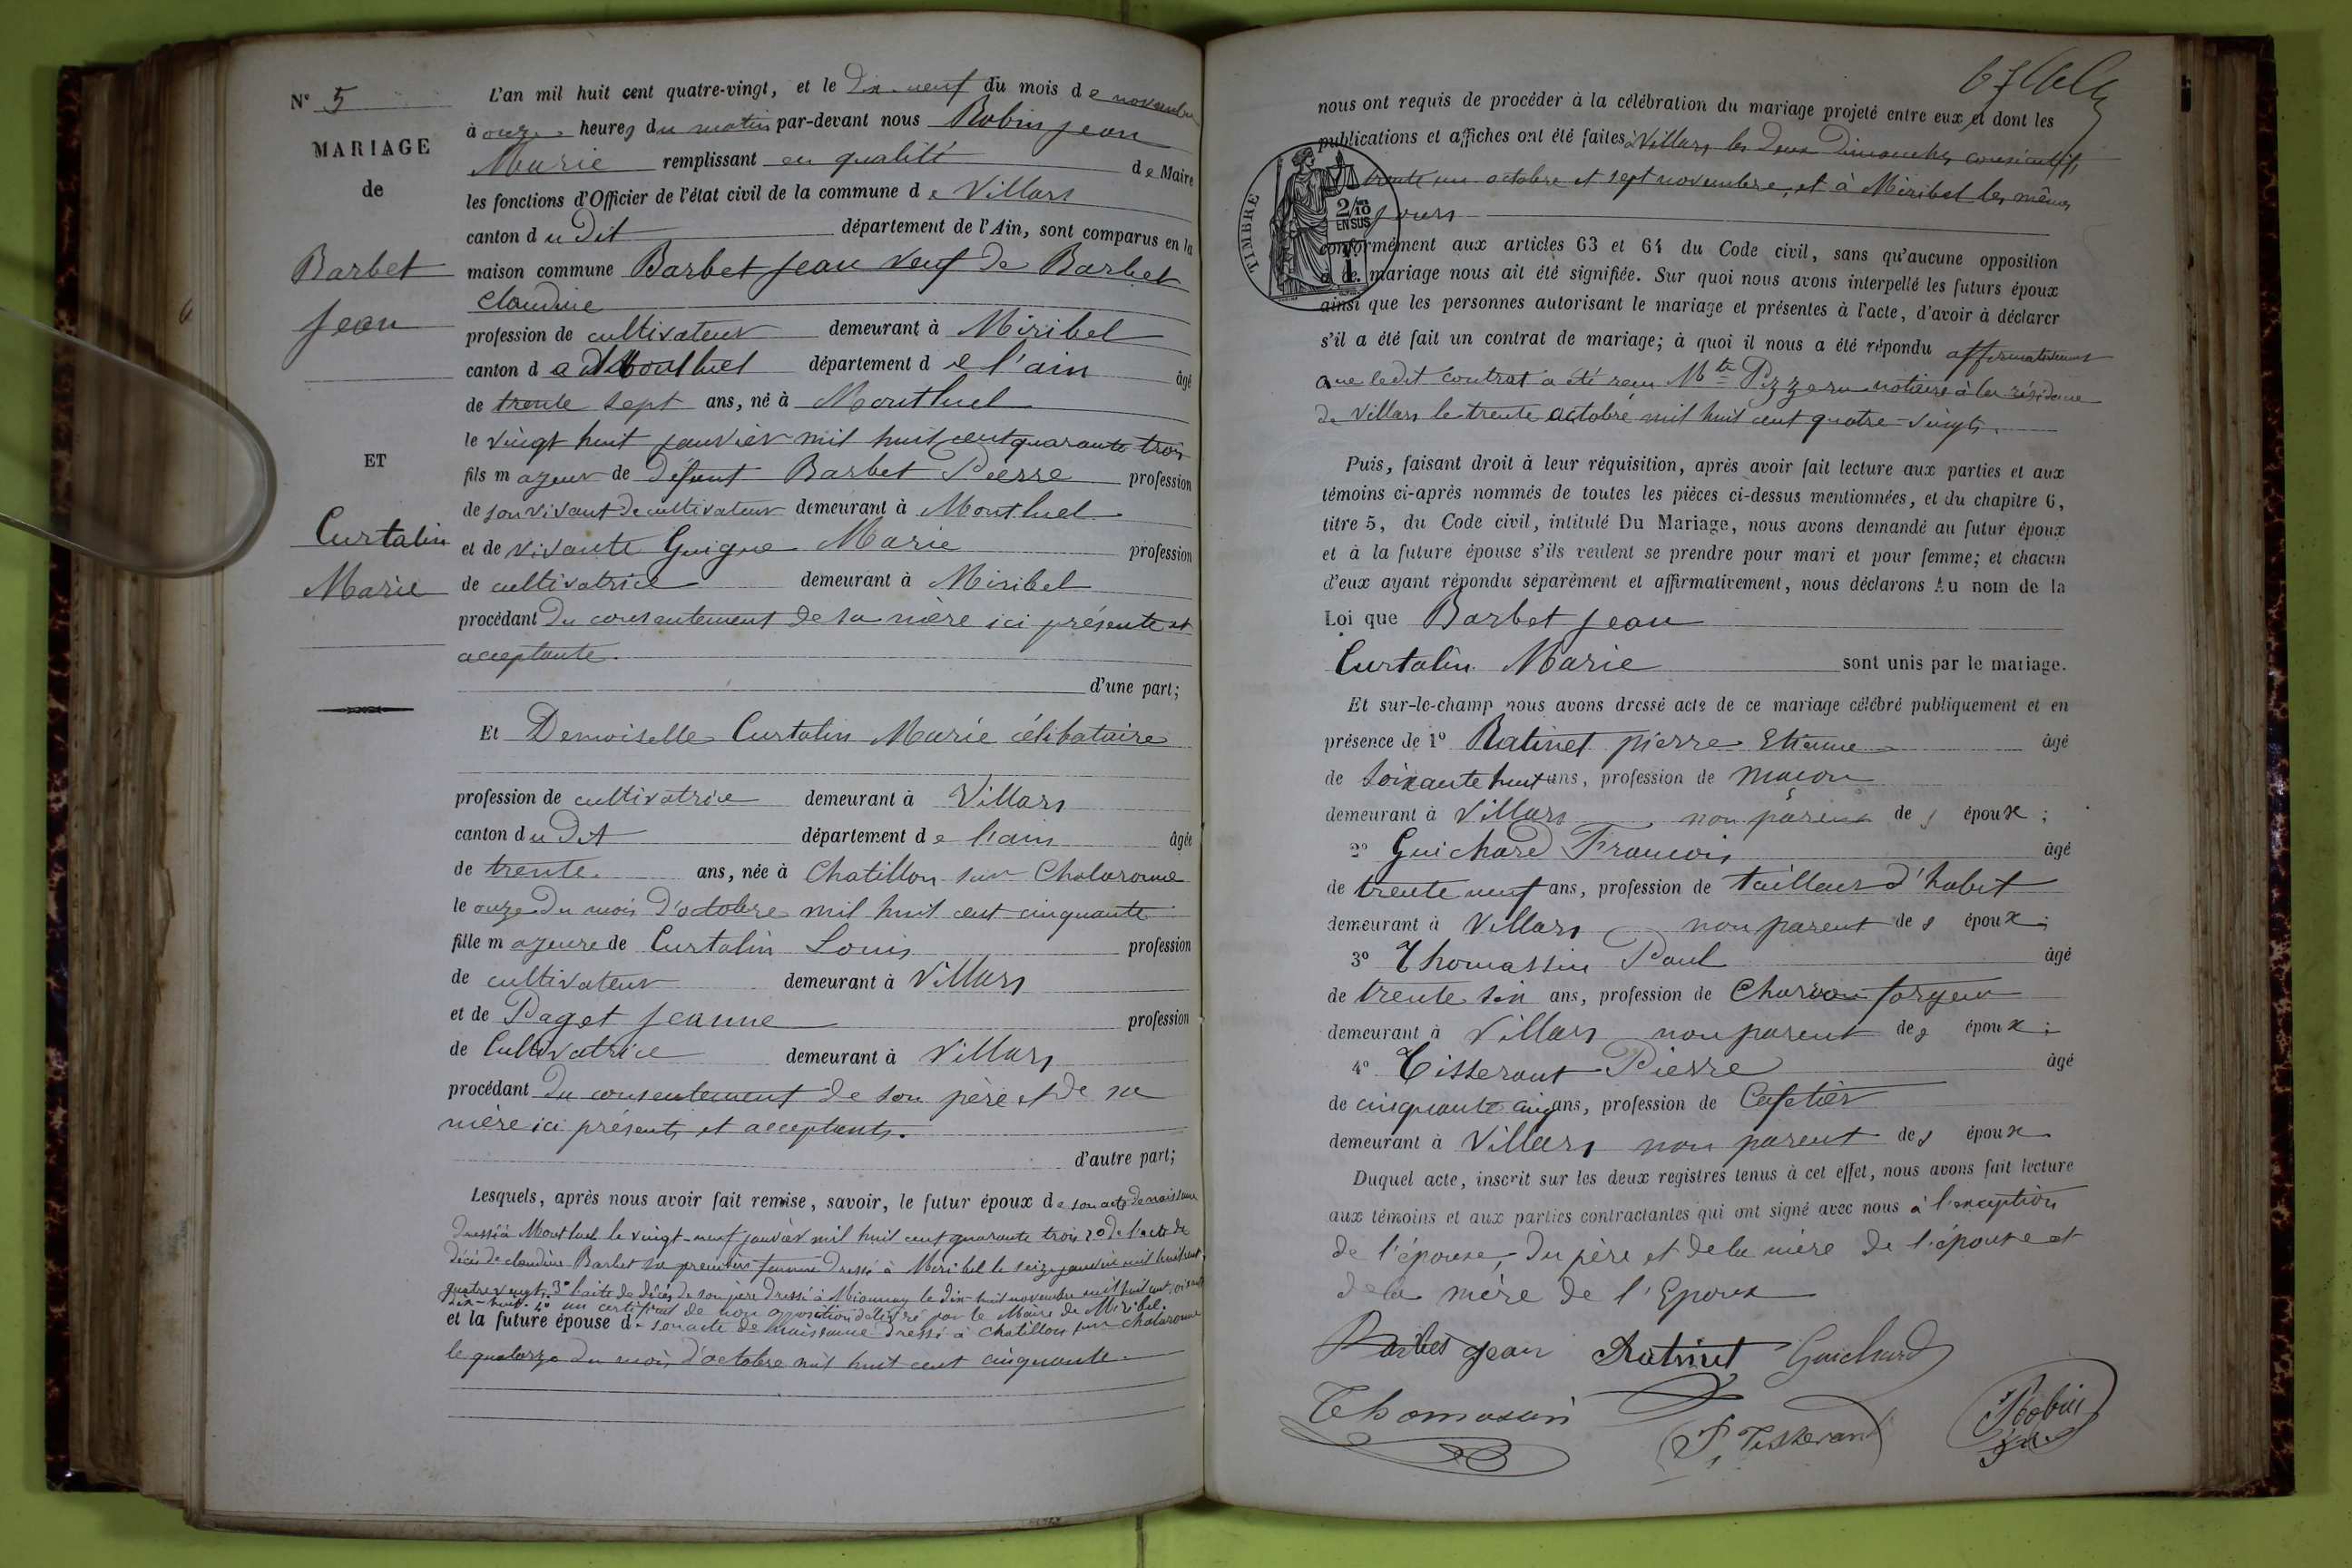 N° 5
MARIAGE
de
Barbet
Jean
ET
Curtalin
Marie
L'an mil huit cent quatre-vingt, et le Dix-neuf du mois de novembre
à onze heures du matin par-devant nous Robin Jean
Marie remplissant en qualité de Maire
les fonctions d'Officier de l'état civil de la commune de Villars
canton dudit département de l'Ain, sont comparus en la
maison commune Barbet Jean veuf de Barbet
Claudine
profession de cultivateur demeurant à Miribel
canton de Montluel département de l'ain âgé
de trente sept ans, né à Montluel
le vingt huit janvier mil huit cent quarante trois
fils majeur de défunt Barbet Pierre profession
de son vivant de cultivateur demeurant à Montluel
et de vivante Guigue Marie profession
de cultivatrice demeurant à Miribel
procédant du consentement de sa mère ici présente et
acceptante.
d'une part;
Et Demoiselle Curtalin Marie célibataire
profession de cultivatrice demeurant à Villars
canton dudit département de l'ain âgée
de trente ans, née à Chatillon sur Chalaronne
le onze du mois d'octobre mil huit cent cinquante
fille majeure de Curtalin Louis profession
de cultivateur demeurant à Villars
et de Paget Jeanne profession
de Cultivatrice demeurant à Villars
procédant du consentement de son père et de sa
mère ici présents et acceptants.
d'autre part;
Lesquels, après nous avoir fait remise, savoir, le futur époux de son acte de naissance
dressé à Montluel le vingt-neuf janvier mil huit cent quarante trois 2° de l'acte de
décès de claudine Barbet sa première femme dressé à Miribel le seize janvier mil huit cent
quatre vingt, 3° l'acte de décès de son père dressé à Mionnay le dix-huit novembre mil huit cent soixante
dix-huit. 4° un certificat de non opposition délivré par le Maire de Miribel.
et la future épouse de son acte de naissance dressé à Chatillon sur chalaronne
le quatorze du mois d'octobre mil huit cent cinquante.
nous ont requis de procéder à la célébration du mariage projeté entre eux, et dont les
publications et affiches ont été faites à Villars les deux Dimanches consécutifs
trente un octobre et sept novembre, et à Miribel les mêmes
jours
TIMBRE
2/10
EN SUS
conformément aux articles 63 et 64 du Code civil, sans qu'aucune opposition
à ce mariage nous ait été signifiée. Sur quoi nous avons interpellé les futurs époux
ainsi que les personnes autorisant le mariage et présentes à l'acte, d'avoir à déclarer
s'il a été fait un contrat de mariage; à quoi il nous a été répondu affirmativement
que ledit contrat a été reçu Mte notaire à la résidence
de Villars le trente octobre mil huit cent quatre-vingts.
Puis, faisant droit à leur réquisition, après avoir fait lecture aux parties et aux
témoins ci-après nommés de toutes les pièces ci-dessus mentionnées, et du chapitre 6,
titre 5, du Code civil, intitulé Du Mariage, nous avons demandé au futur époux
et à la future épouse s'ils veulent se prendre pour mari et pour femme; et chacun
d'eux ayant répondu séparément et affirmativement, nous déclarons Au nom de la
Loi que Barbet Jean
Curtalin Marie sont unis par le mariage.
Et sur-le-champ nous avons dressé acte de ce mariage célébré publiquement et en
présence de 1° Ratinet pierre Etienne âgé
de soixante huit ans, profession de maçon
demeurant à Villars non parent des époux;
2° Guichard François âgé
de trente neuf ans, profession de tailleur d'habit
demeurant à Villars non parent des époux;
3° Thomassin Paul âgé
de trente six ans, profession de Charron forgeur
demeurant à Villars non parent des époux;
4° Tisserant Pierre âgé
de cinquante cinq ans, profession de Cafetier
demeurant à Villars non parent des époux
Duquel acte, inscrit sur les deux registres tenus à cet effet, nous avons fait lecture
aux témoins et aux parties contractantes qui ont signé avec nous à l'exception
de l'épouse, du père et de la mère de l'épouse et
de la mère de l'Epoux
Barbet Jean Ratinet Guichard
Thomassin P. Tisserand Robin